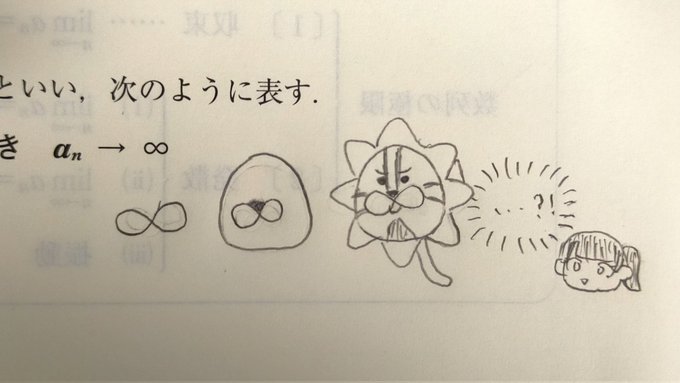 といい，次のように表す．
き a_n → ∞
∞
...?!